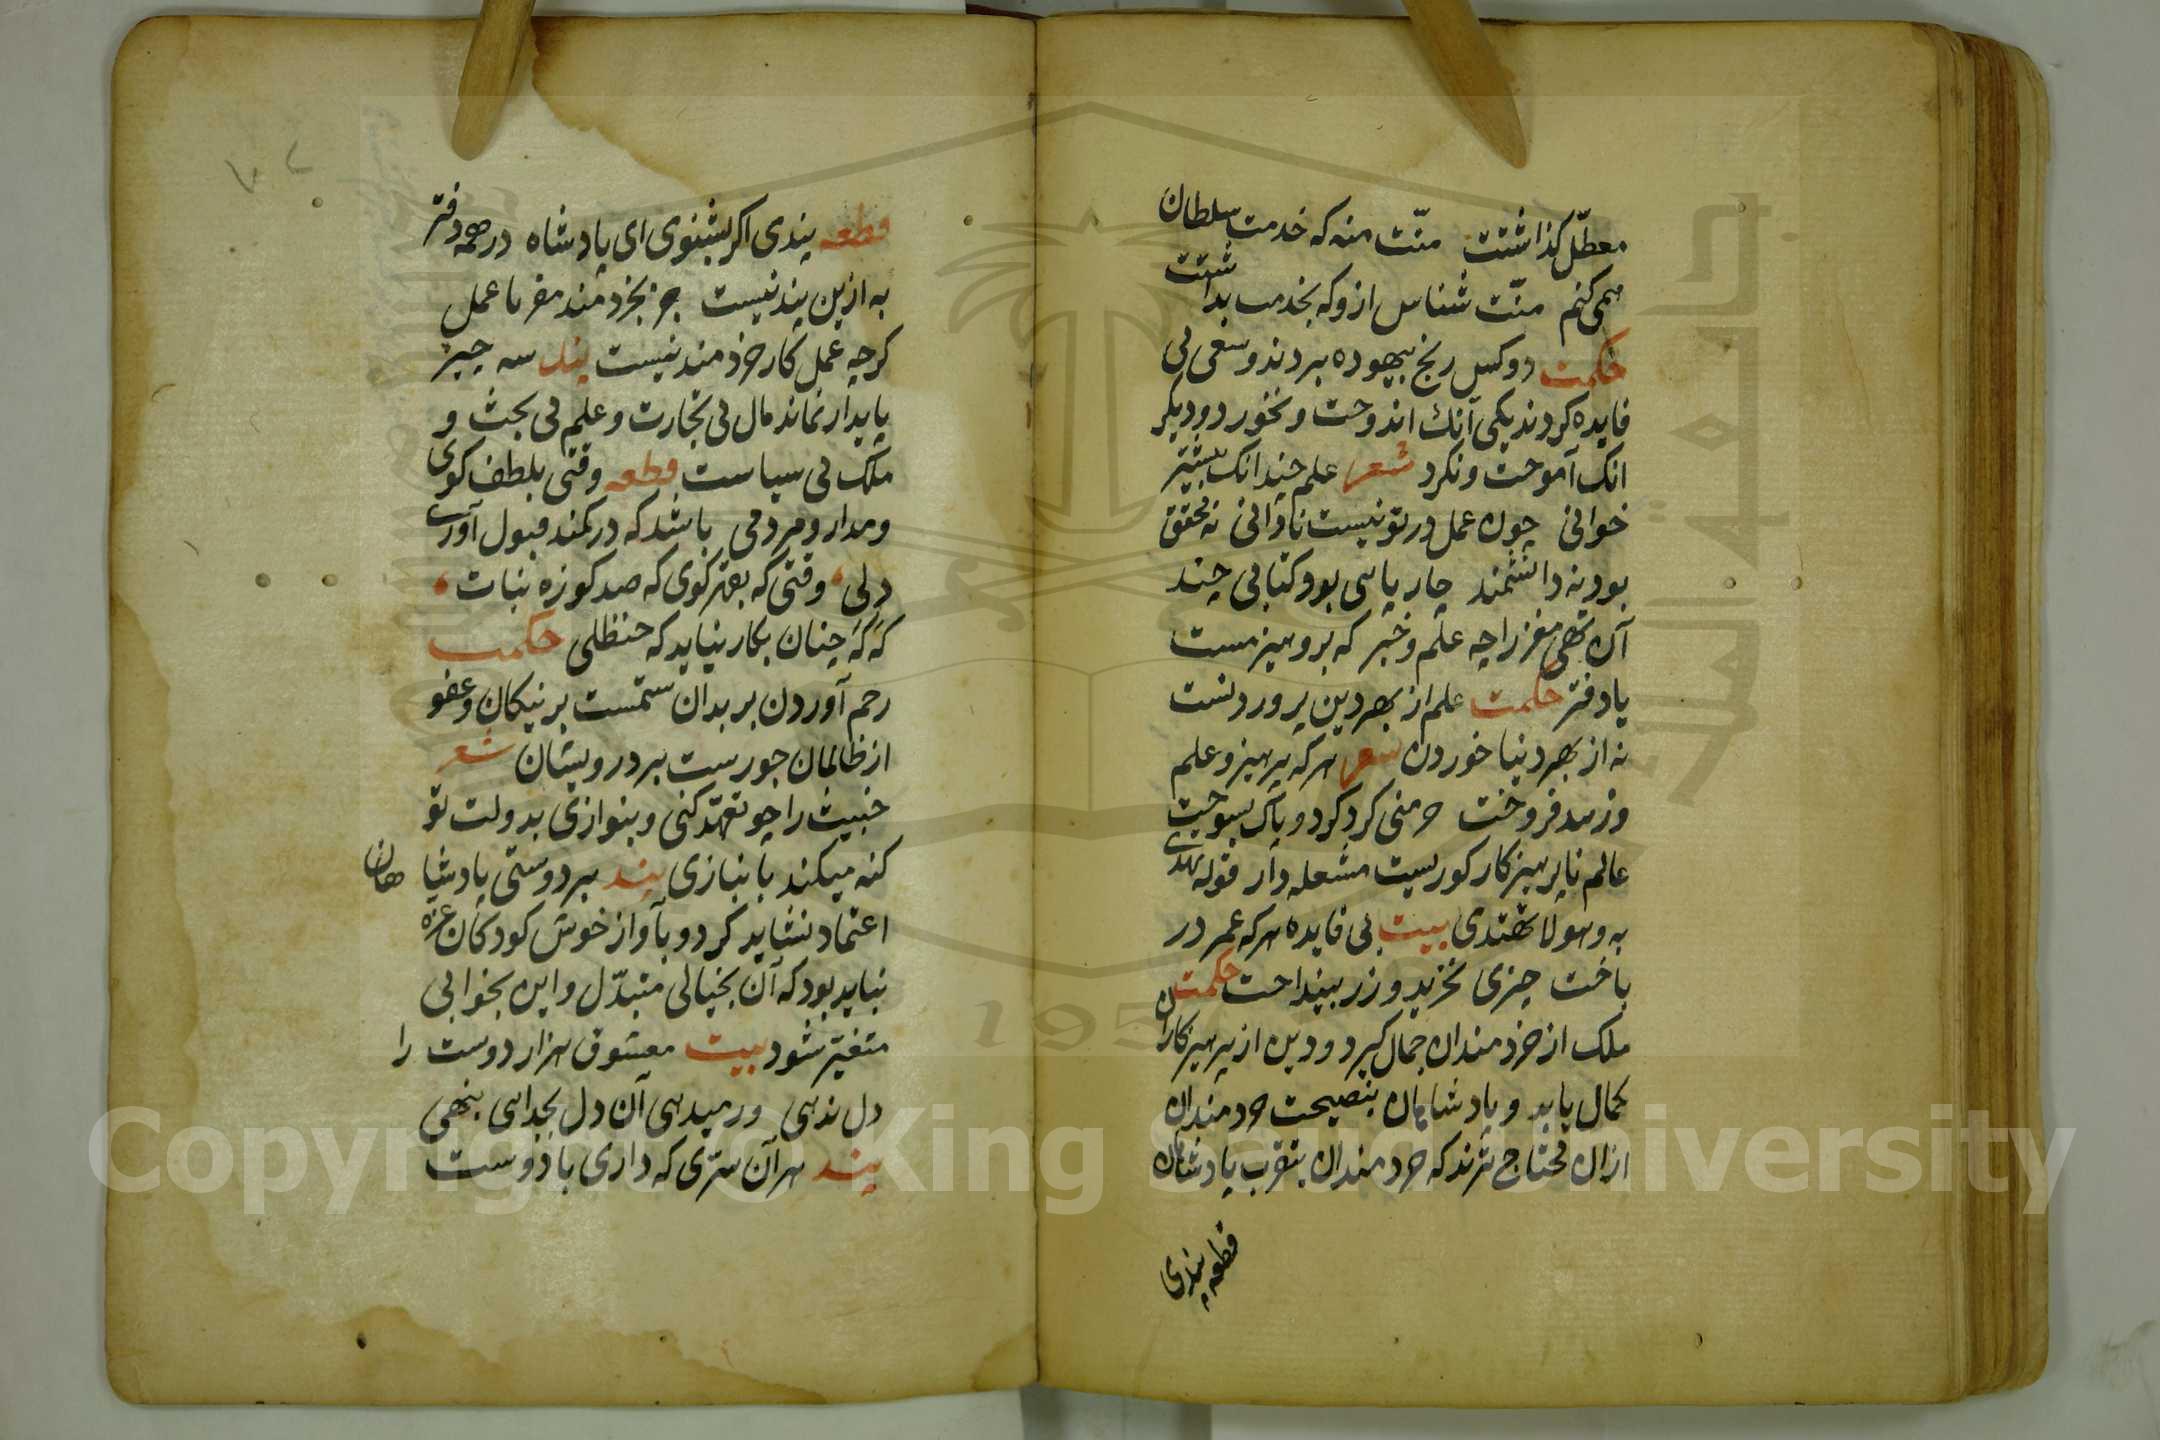 معطّل گذاشتت منّت منه که خدمت سلطان
همی کنم منّت شناس ازو که بخدمت بداشتت
حکمت دو کس رنج بیهوده بردند و سعی بی
فایده کردند یکی آنک اندوخت و نخورد و دیگر
انک آموخت و نکرد شعر علم چندانک بیشتر
خوانی چون عمل در تو نیست نادانی نه محقق
بود نه دانشمند چارپایی بود کتابی چند
آن تهی مغز را چه علم و خبر که برو هیزمست
یا دفتر حکمت علم از بهر دین پروردنست
نه از بهر دنیا خوردن شعر هرکه پرهیز و علم
و زهد فروخت خرمنی گرد کرد و پاک بسوخت
عالم ناپرهیزکار کوریست مشعله دار قوله یهدی
به و هو لا یهتدی بیت بی فایده هرکه عمر در
باخت چیزی نخرید و زر بینداخت حکمت
ملک از خردمندان جمال گیرد و دین از پرهیزکاران
کمال یابد و پادشاهان بنصیحت خردمندان
ازان محتاج ترند که خردمندان بتقرب پادشاهان
قطعه پندی
قطعه پندی اگر بشنوی ای پادشاه در همه دفتر
به ازین پند نیست جز بخردمند مفرما عمل
گرچه عمل کار خردمند نیست پند سه چیز
پایدار نماند مال بی تجارت و علم بی بحث و
ملک بی سیاست قطعه وقتی بلطف کوی
و مدار و مردمی باشد که در کمند قبول آوری
دلی وقتی که بقهر کوی که صد کوزه نبات
که که چنان بکار نیاید که حنظلی حکمت
رحم آوردن بر بدان ستمست بر نیکان و عفو
از ظالمان جورست بر درویشان شعر
خبیث را چو تعهّد کنی و بنوازی بدولت تو
کنه میکند بانبازی پند بر دوستی پادشا هان
اعتماد نشاید کرد و بآواز خوش کودکان غره
نباید بود که آن بخیالی متبدّل و این بخوابی
متغیّر شود بیت معشوق هزار دوست را
دل ندهی ور میدهی آن دل بجدایی بنهی
پند هر آن سرّی که داری با دوست
Copyright © King Saud University
1957